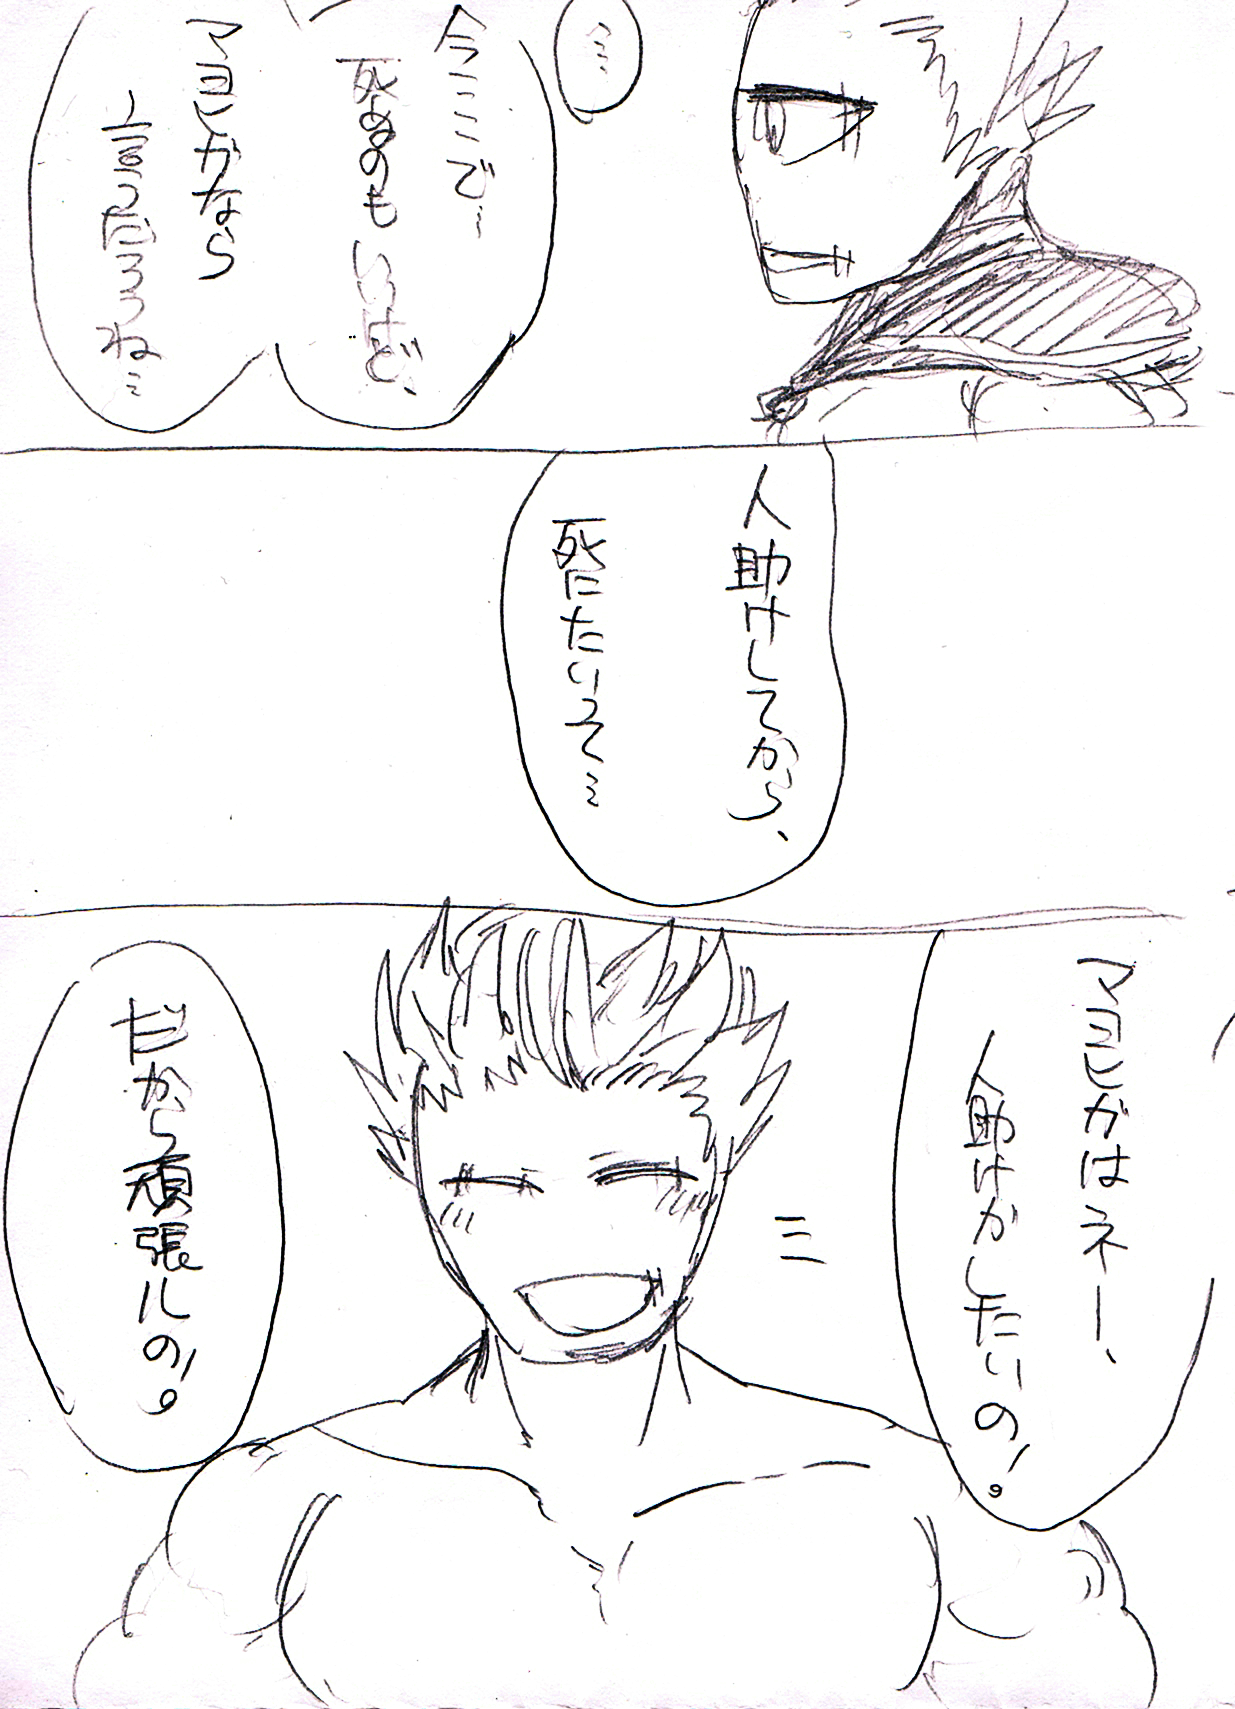 …
今ここで…
死ぬのもいいけど、
マヨヒガなら
言うだろうね…
人助けしてから、
死にたいって…
マヨヒガはネー、
人助けがしたいの!。
だから頑張ルの!。